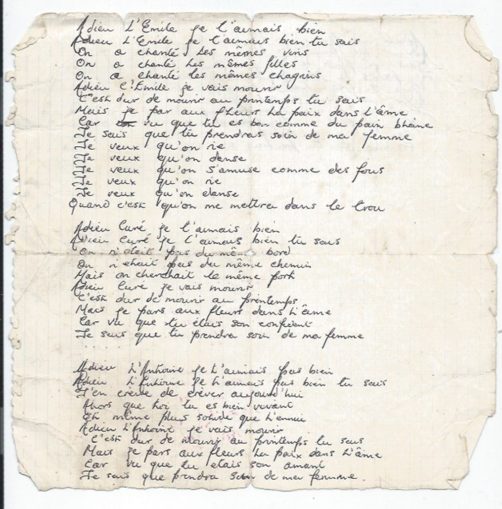 Adieu L'Emile je t'aimais bien
Adieu L'Emile je t'aimais bien tu sais
On a chanté les mêmes vins
On a chanté les mêmes filles
On a chanté les mêmes chagrins
Adieu L'Emile je vais mourir
C'est dur de mourir au printemps tu sais
Mais je par aux fleurs la paix dans l'âme
Car vu que t'es bon comme du pain blanc
Je sais que tu prendras soin de ma femme
Je veux qu'on rie
Je veux qu'on danse
Je veux qu'on s'amuse comme des fous
Je veux qu'on rie
Je veux qu'on danse
Quand c'est qu'on me mettra dans le trou
Adieu Curé je t'aimais bien
Adieu Curé je t'aimais bien tu sais
On n'était pas du même bord
On n'était pas du même chemin
Mais on cherchait le même port
Adieu Curé je vais mourir
C'est dur de mourir au printemps
Mais je pars aux fleurs dans l'âme
Car vu que tu étais son confident
Je sais que tu prendra soin de ma femme
...
Adieu L'Antoine je t'aimais pas bien
Adieu L'Antoine je t'aimais pas bien tu sais
J'en crève de crever aujourd'hui
Alors que toi tu es bien vivant
Et même plus solide que l'ennui
Adieu L'Antoine je vais mourir
C'est dur de mourir au printemps tu sais
Mais je pars aux fleurs la paix dans l'âme
Car vu que tu étais son amant
Je sais que prendra soin de ma femme.